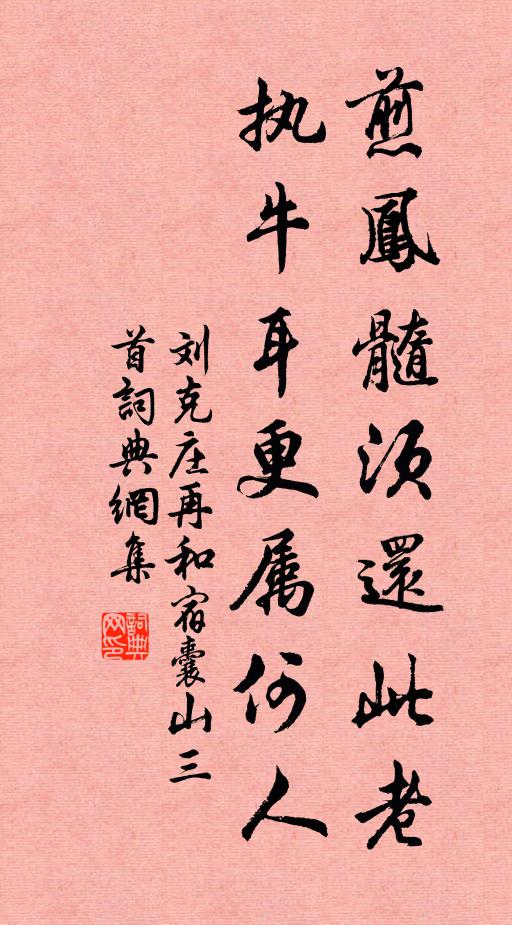 煎鳳髓須還此老
执牛耳更属何人
刘克庄再和宿囊山三
首詞典網集
詞典网印